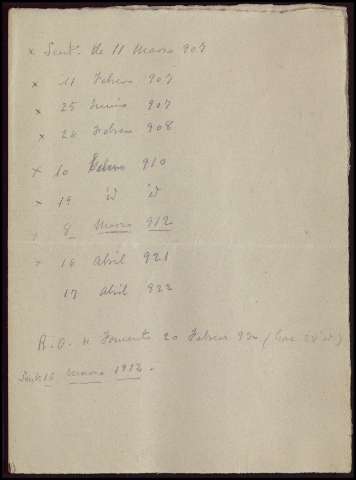 x Sentª. de 11 Marzo 907
x 11 Febrero 907
x 25 Junio 907
x 24 Febrero 908
x 10 Febrero 910
x 19 id id
x 8 Marzo 912
x 16 Abril 921
17 Abril 922
R. O. de Fomento 20 Febrero
Sent. 16 Marzo 1912.